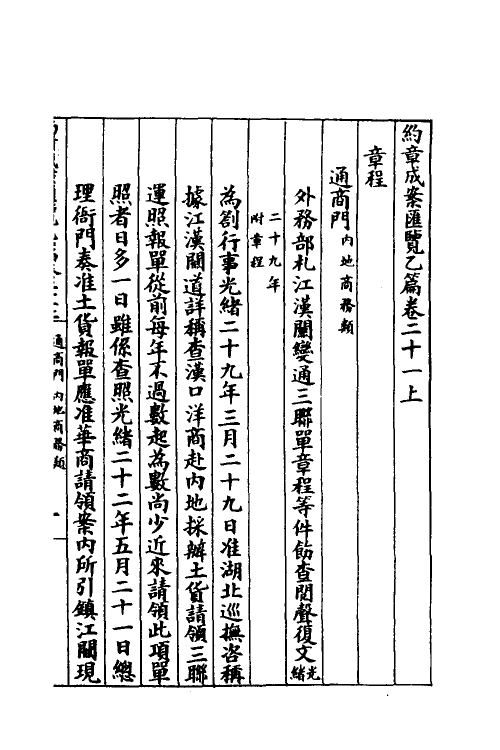 約章成案匯覽乙篇卷二十一上
章程
通商門 內地商務類
外務部札江漢關變通三聯單章程等件飭查閱聲復文 光緒
二十九年
附章程
為劄行事光緒二十九年三月二十九日准湖北巡撫咨稱
據江漢關道詳稱查漢口洋商赴內地採辦土貨請領三聯
運照報單從前每年不過數起為數尚少近來請領此項單
照者日多一日雖係查照光緒二十二年五月二十一日總
理衙門奏准土貨報單應准華商請領案內所引鎮江關現
通商門 內地商務類 一